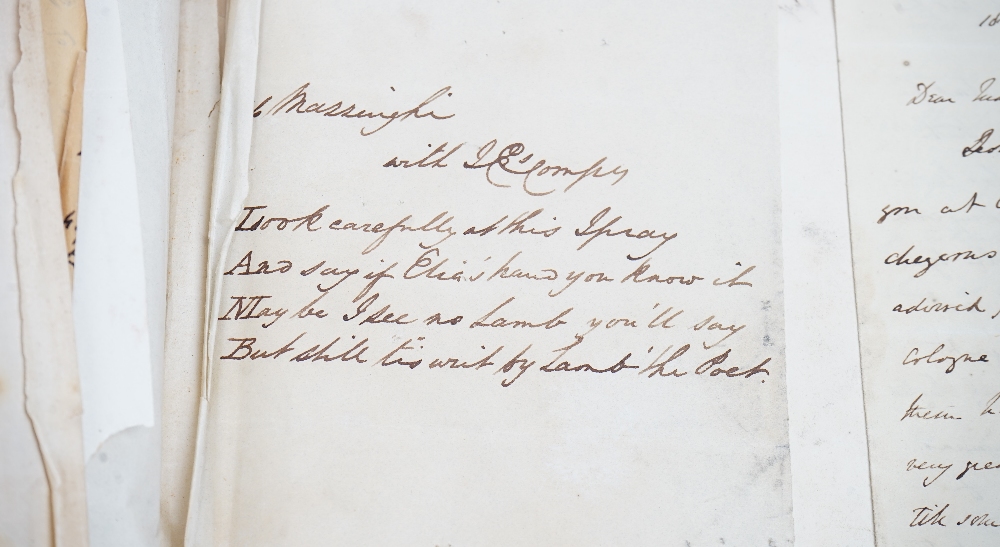 Massinghi
with I C's Comps
Look carefully at this I pray
And say if Elia's hand you know it
May be I see no Lamb you'll say
But still 'tis writ by Lamb 'the Poet.
18
Dear
you at
Cologne
them
very